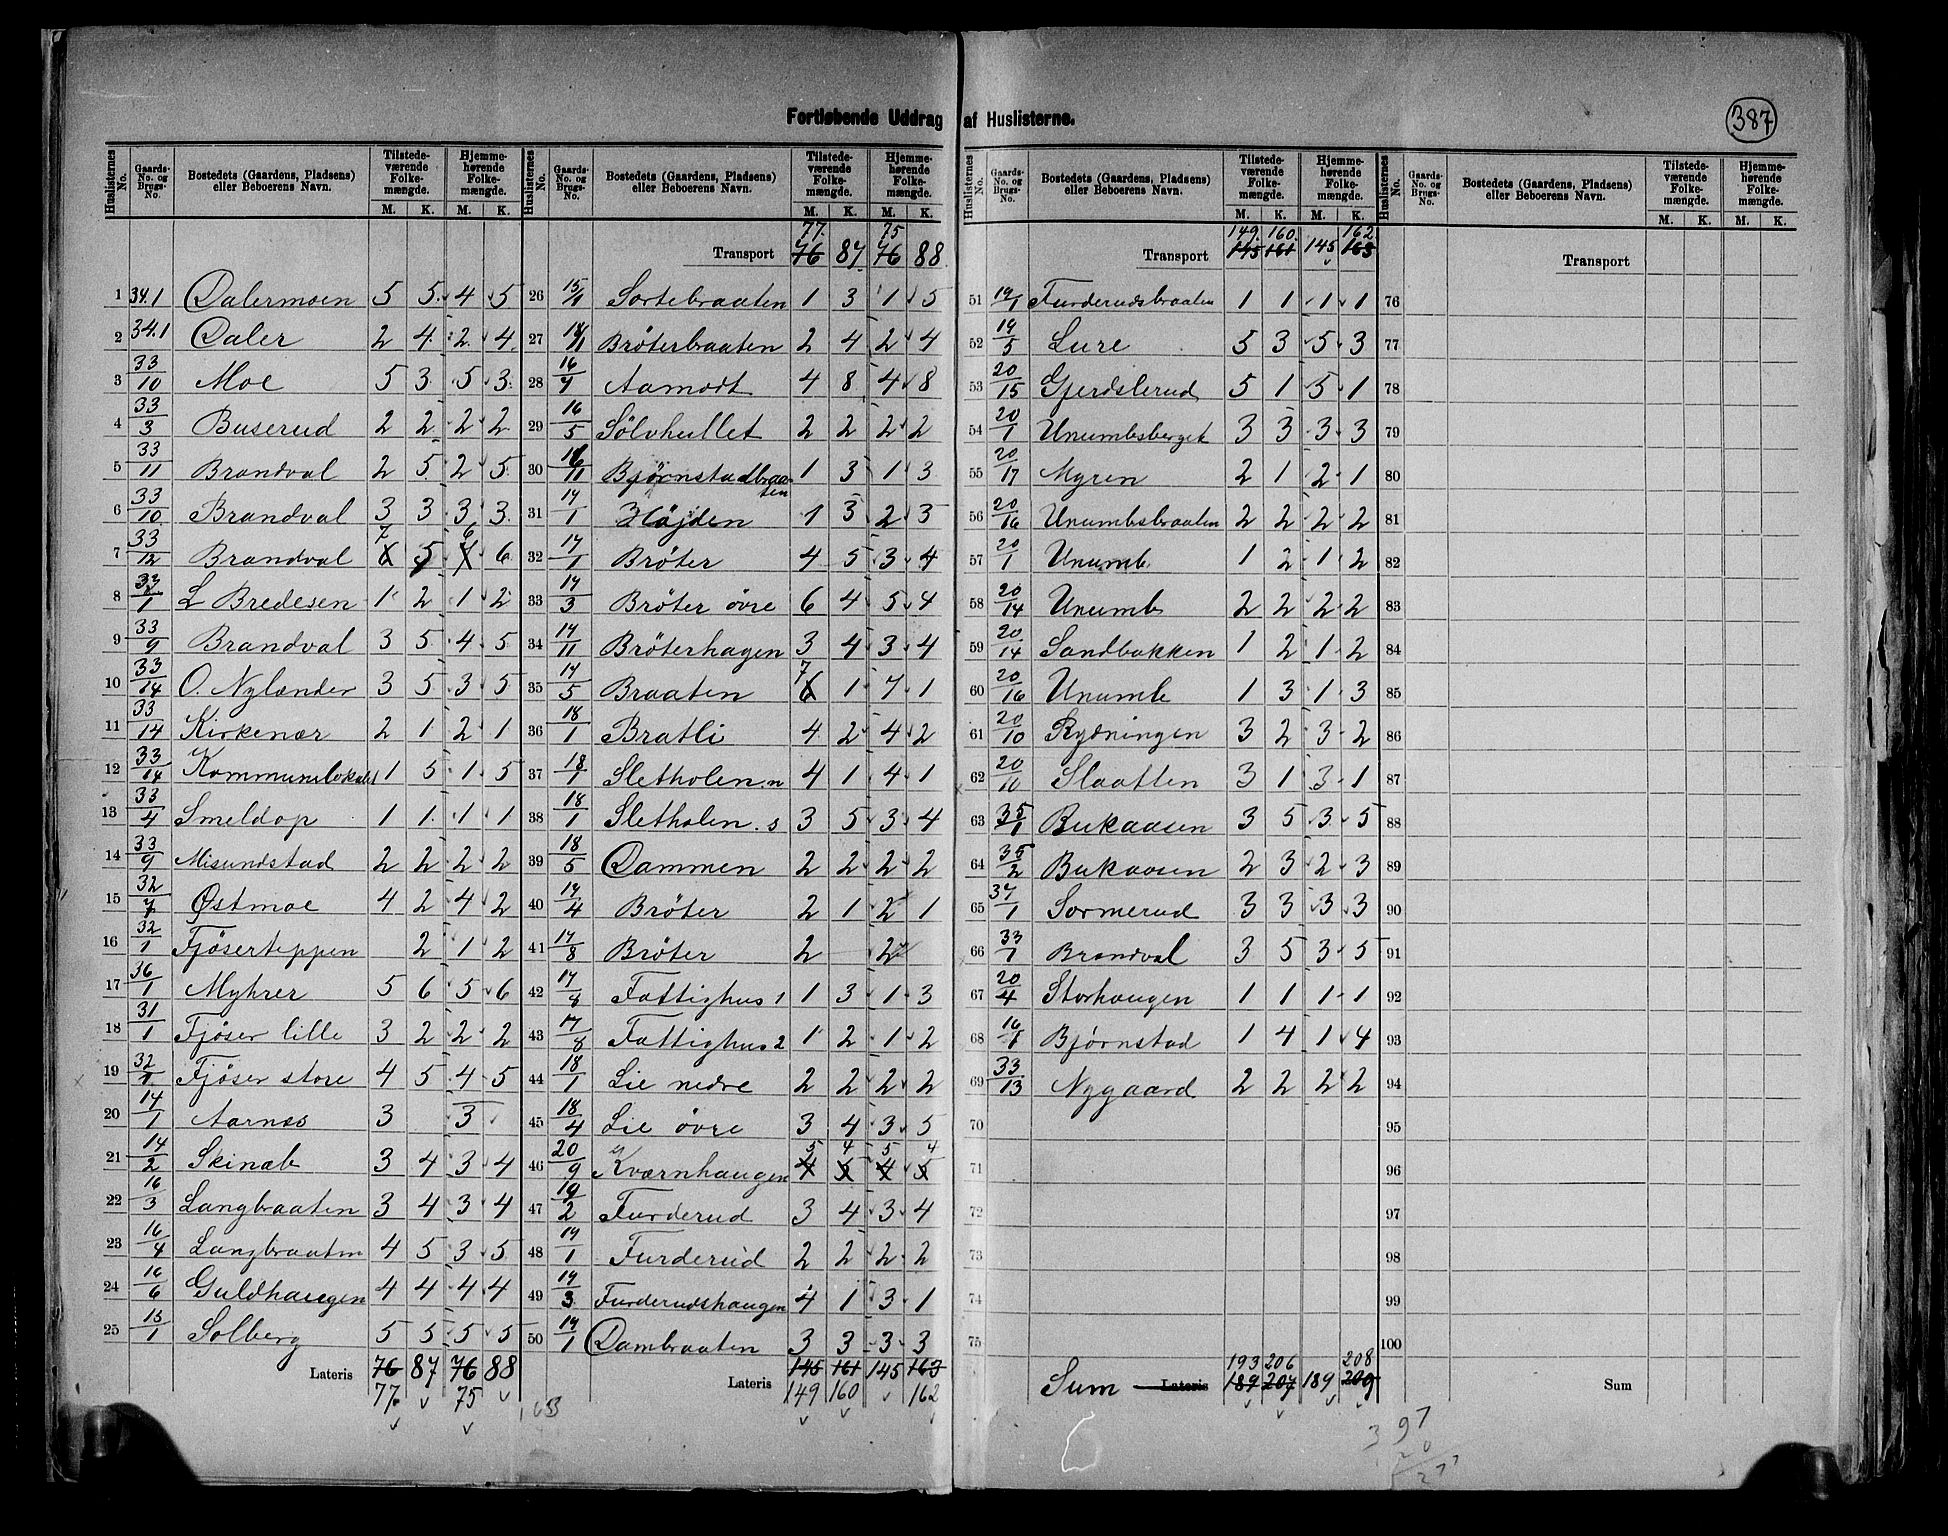 387
Fortløbende Uddrag af Huslisterne.
Huslisternes No. | Gaards-No. og Brugs-No. | Bostedets (Gaardens, Pladsens) eller Beboerens Navn. | Tilstedeværende Folkemængde. M. K. | Hjemmehørende Folkemængde. M. K.
1 34.1 Dalermoen 5 5 4 5
2 34.1 Daler 2 4 2 4
3 33/10 Moe 5 3 5 3
4 33/3 Buserud 2 2 2 2
5 33/11 Brandval 2 5 2 5
6 33/10 Brandval 3 3 3 3
7 33/12 Brandval 7 5 6 6
8 33/1 L Bredesen 1 2 1 2
9 33/9 Brandval 3 5 4 5
10 33/14 O. Nylænder 3 5 3 5
11 33/14 Kirkenær 2 1 2 1
12 33/14 Kommunelokalet 1 5 1 5
13 33/4 Smeldop 1 1 1 1
14 33/9 Misundstad 2 2 2 2
15 32/7 Østmoe 4 2 4 2
16 32/1 Fjöserteppen 2 1 2
17 36/1 Myhrer 5 6 5 6
18 31/1 Fjöser lille 3 2 2 2
19 32/1 Fjöser store 4 5 4 5
20 14/1 Aarnes 3 3
21 14/2 Skinab 3 4 3 4
22 16/3 Langbraaten 3 4 3 4
23 16/4 Langbraaten 4 5 3 5
24 16/6 Guldhaugen 4 4 4 4
25 15/1 Solberg 5 5 5 5
Lateris 76 87 76 88
77. 75
Transport 76 87 76 88
77. 75
26 15/1 Sortebraaten 1 3 1 5
27 18/1 Bröterbraaten 2 4 2 4
28 16/7 Aamodt 4 8 4 8
29 16/5 Sölvhullet 2 2 2 2
30 16/11 Bjørnstadbraaten 1 3 1 3
31 17/1 Höjden 1 3 2 3
32 17/1 Bröter 4 5 3 4
33 17/3 Bröter övre 6 4 5 4
34 17/11 Bröterhagen 3 4 3 4
35 17/5 Braaten 7 1 7 1
36 18/1 Bratli 4 2 4 2
37 18/1 Sletholen. n 4 1 4 1
38 18/1 Sletholen. s 3 5 3 4
39 18/5 Dammen 2 2 2 2
40 17/4 Bröter 2 1 2 1
41 17/8 Bröter 2 2
42 17/8 Fattighus 1 1 3 1 3
43 17/8 Fattighus 2 1 2 1 2
44 18/1 Lie nedre 2 2 2 2
45 18/4 Lie övre 3 4 3 5
46 20/9 Kværnhaugen 5 4 5 4
47 19/2 Furderud 3 4 3 4
48 19/1 Furderud 2 2 2 2
49 19/3 Furderudshaugen 4 1 3 1
50 19/1 Dambraaten 3 3 3 3
Lateris 145 161 145 163
149 160 162
Huslisternes No. | Gaards-No. og Brugs-No. | Bostedets (Gaardens, Pladsens) eller Beboerens Navn. | Tilstedeværende Folkemængde. M. K. | Hjemmehørende Folkemængde. M. K.
Transport 145 161 145 163
149. 160. 162
51 19/1 Furderudsbraaten 1 1 1 1
52 19/5 Lure 5 3 5 3
53 20/15 Gjerdslerud 5 1 5 1
54 20/1 Unumbsberget 3 3 3 3
55 20/17 Myren 2 1 2 1
56 20/16 Unumbsbraaten 2 2 2 2
57 20/1 Unumb 1 2 1 2
58 20/14 Unumb 2 2 2 2
59 20/14 Sandbakken 1 2 1 2
60 20/16 Unumb 1 3 1 3
61 20/10 Rydningen 3 2 3 2
62 20/10 Slaatten 3 1 3 1
63 35/1 Bukaasen 3 5 3 5
64 35/2 Bukaasen 2 3 2 3
65 37/1 Sormerud 3 3 3 3
66 33/7 Brandval 3 5 3 5
67 20/4 Storhaugen 1 1 1 1
68 16/1 Bjørnstad 1 4 1 4
69 33/13 Nygaard 2 2 2 2
70
71
72
73
74
75
193 206 208
Sum Lateris 189 207 189 209
Transport
76
77
78
79
80
81
82
83
84
85
86
87
88
89
90
91
92
93
94
95
96
97
98
99
100
Sum
397